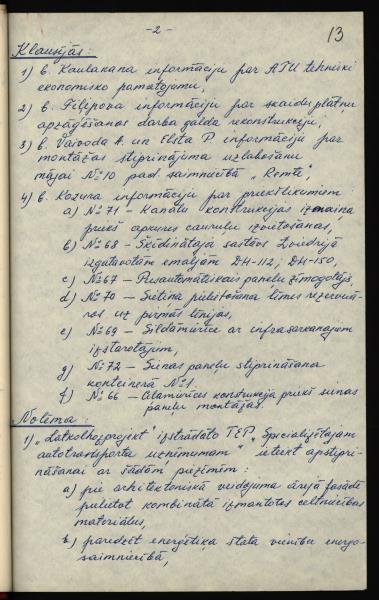 -2-
13
Klausījās:
1) b. Kaulakana informāciju par ATU tehniski
ekonomisko pamatojumu,
2) b. Filipova informāciju par skaidu plātņu
apzāģēšanas darba galda rekonstrukciju,
3) b. Vaivoda A. un Elsta P. informāciju par
montāžas stiprinājuma uzlabošanu
mājai Nº10 pad. saimniecībā „Remte",
4) b. Kozura informāciju par priekšlikumiem
a) Nº71 - Kanālu konstrukcijas izmaiņa
priekš apkures cauruļu izvietošanas,
b) Nº68 - Šķīdinātāja sastāvs Zviedrijā
izgatavotām emaljām DH-112, DH-150,
c) Nº67 - Pusautomātiskais paneļu zīmogotājs
d) Nº70 - Sietiņa pielietošana līmes rezervuā-
ros uz pirmās līnijas,
e) Nº69 - Sildāmierīce ar infrasarkanajiem
izstarotājiem,
g) Nº72 - Sienas paneļu stiprināšana
konteinerā Nº1.
f) Nº66 - Atamierīces konstrukcija priekš sienas
paneļu montāžas.
Nolēma:
1) „Latkolhozprojekt" izstrādāto TEP „Specializētajam
autotransporta uzņēmumam" ieteikt apstipri-
nāšanai ar šādām piezīmēm:
a) pie arhitektoniskā veidojuma ārējā fasādē
pielietot kombinātā izmantotos celtniecības
materiālus,
b) paredzēt enerģētiķa štata vienību energo-
saimniecībā,